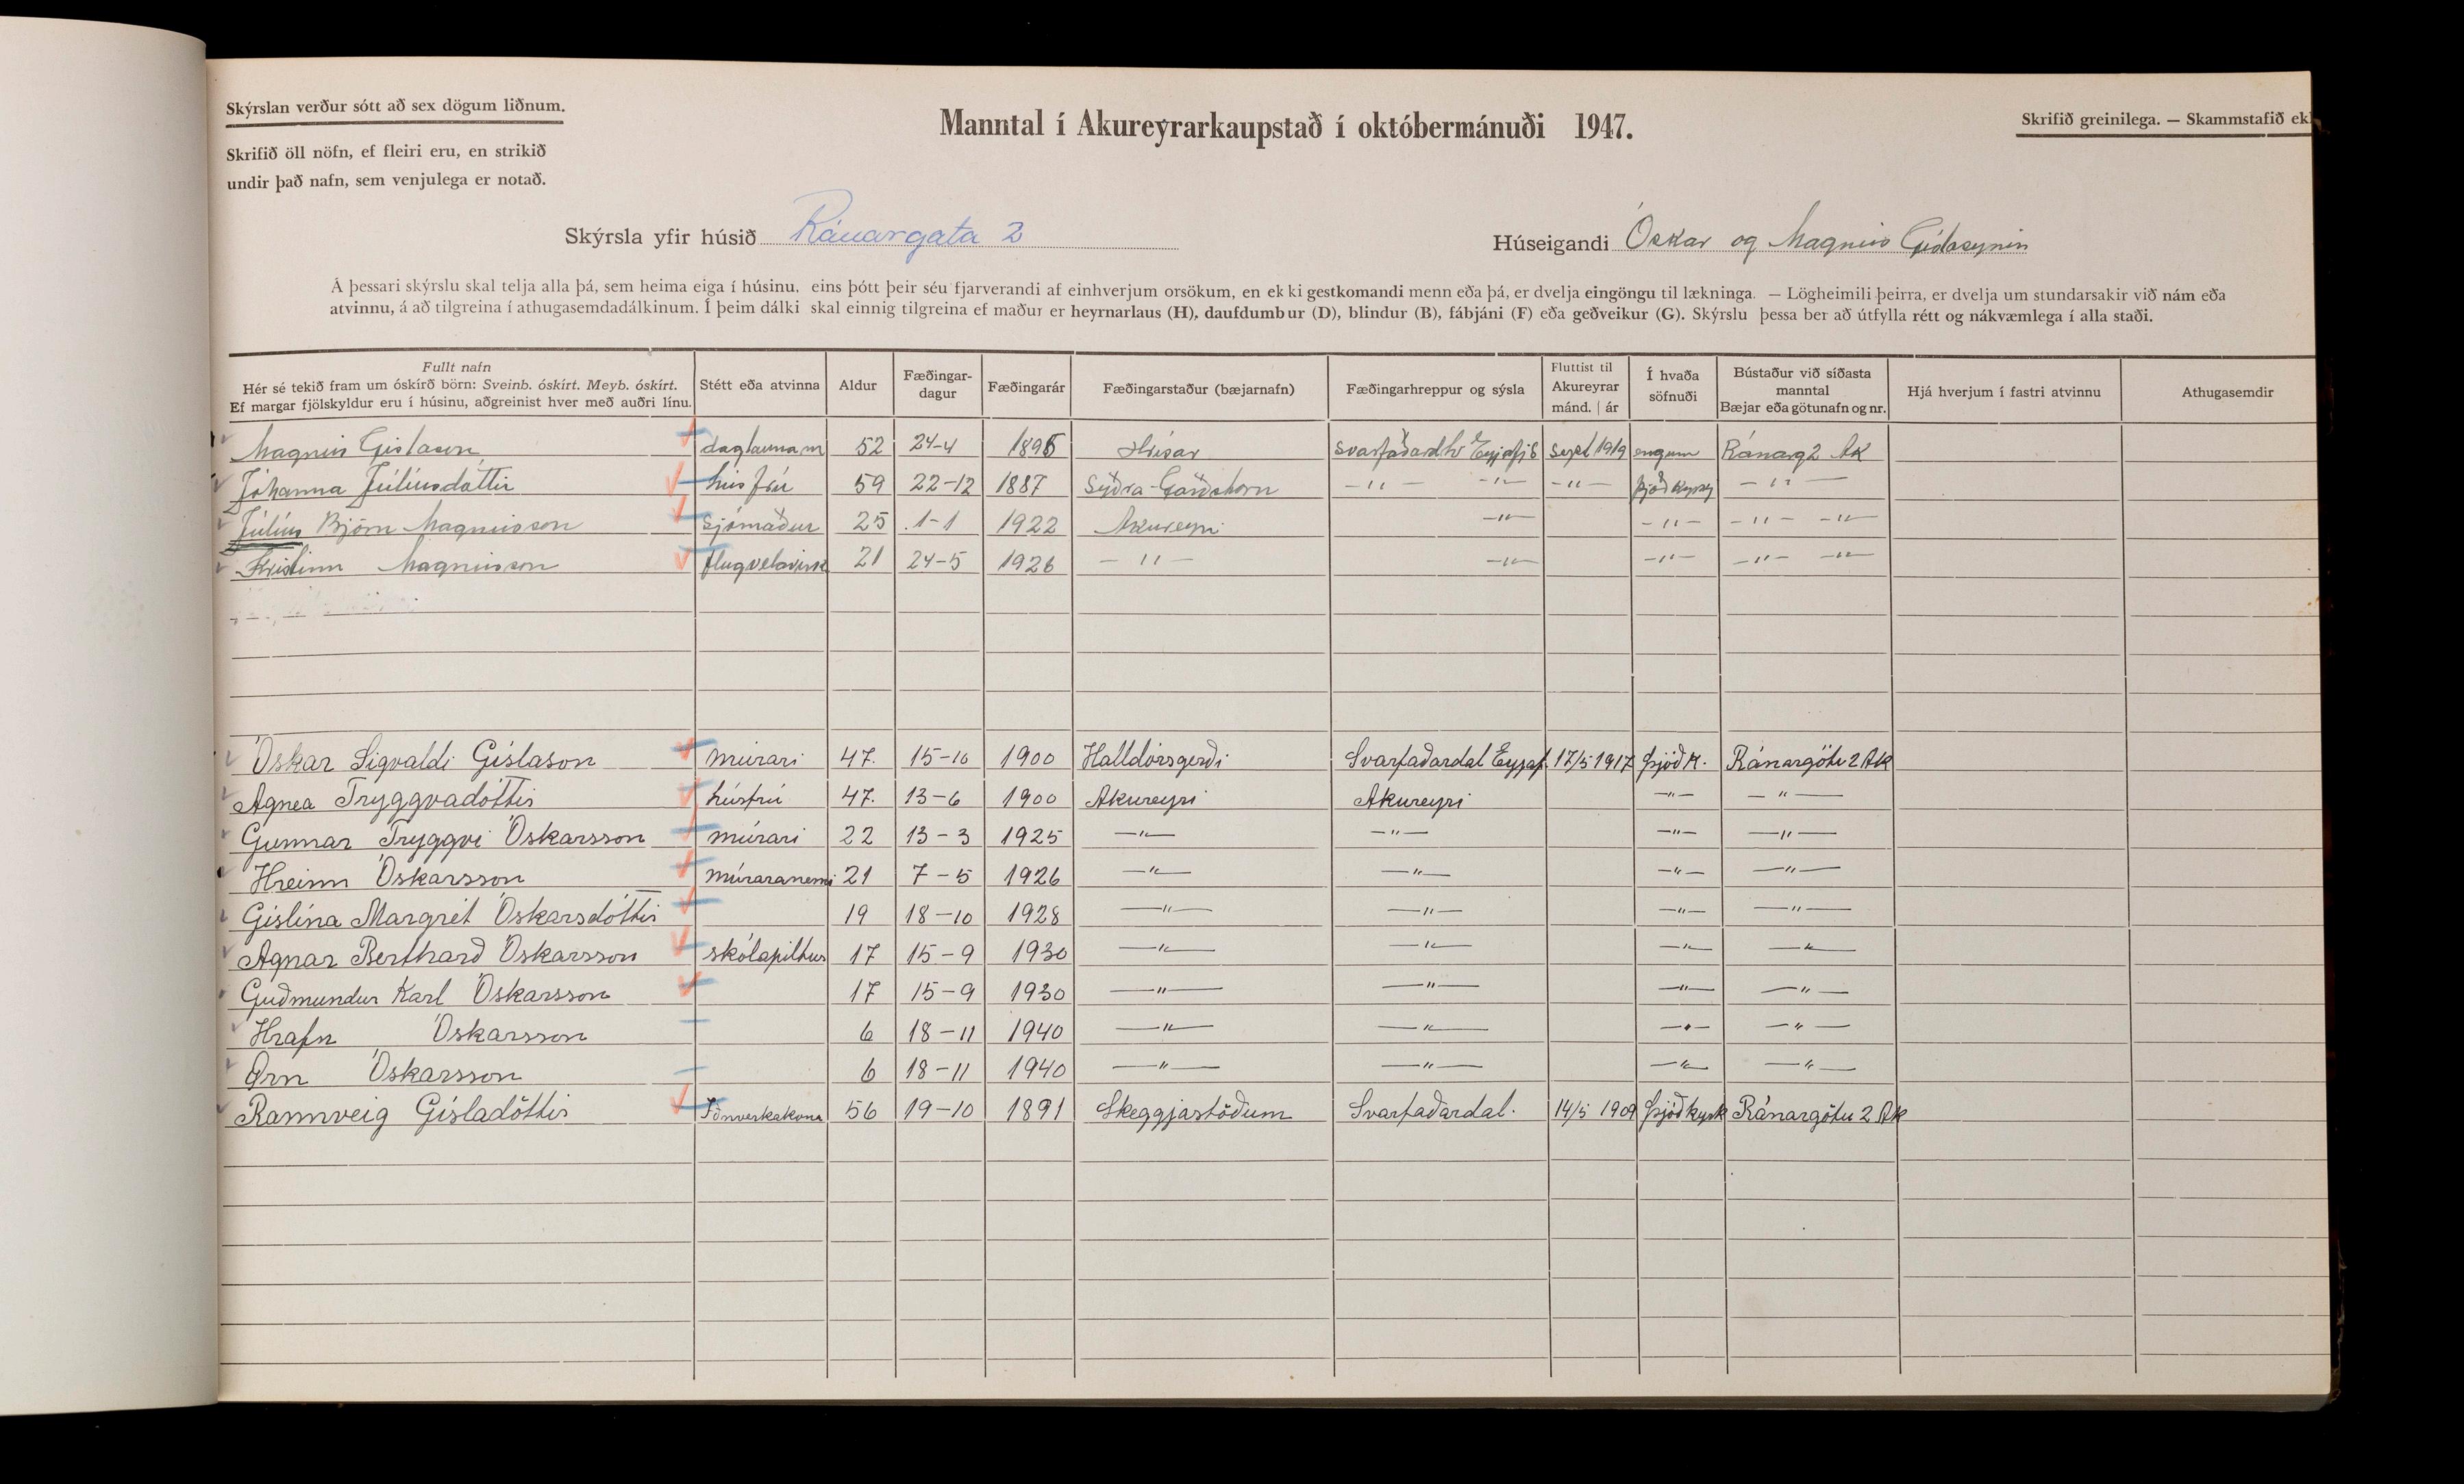 Skýrslan verður sótt að sex dögum liðnum.
Manntal í Akureyrarkaupstað í októbermánuði 1947.
Skrifið greinilega. — Skammstafið ek
Skrifið öll nöfn, ef fleiri eru, en strikið
undir það nafn, sem venjulega er notað.
Skýrsla yfir húsið Ránargata 2
Húseigandi Óskar og Magnús Gíslasynir
Á þessari skýrslu skal telja alla þá, sem heima eiga í húsinu, eins þótt þeir séu fjarverandi af einhverjum orsökum, en ekki gestkomandi menn eða þá, er dvelja eingöngu til lækninga. — Lögheimili þeirra, er dvelja um stundarsakir við nám eða
atvinnu, á að tilgreina í athugasemdadálkinum. Í þeim dálki skal einnig tilgreina ef maður er heyrnarlaus (H), daufdumbur (D), blindur (B), fábjáni (F) eða geðveikur (G). Skýrslu þessa ber að útfylla rétt og nákvæmlega í alla staði.
Fullt nafn
Hér sé tekið fram um óskírð börn: Sveinb. óskírt. Meyb. óskírt.
Ef margar fjölskyldur eru í húsinu, aðgreinist hver með auðri línu.
Stétt eða atvinna
Aldur
Fæðingar-
dagur
Fæðingarár
Fæðingarstaður (bæjarnafn)
Fæðingarhreppur og sýsla
Fluttist til
Akureyrar
mánd. | ár
Í hvaða
söfnuði
Bústaður við síðasta
manntal
Bæjar eða götunafn og nr.
Hjá hverjum í fastri atvinnu
Athugasemdir
Magnús Gíslason daglaunam 52 24-4 1895 Hrísar Svarfaðardhr Eyjafjs Sept 1919 engum Ránarg 2 Ak
Jóhanna Júlíusdóttir húsfrú 59 22-12 1887 Syðra-Garðshorn -"- -"- -"- -"-
Júlíus Björn Magnússon sjómaður 25 1-1 1922 Akureyri -"- -"- -"- -"-
Kristinn Magnússon flugvélavirk 21 24-5 1926 -"- -"- -"- -"- -"-
Óskar Sigvaldi Gíslason múrari 47. 15-10 1900 Halldórsgerði Svarfaðardal Eyjaf. 17/5 1917 þjóðk. Ránargötu 2 Ak
Agnea Tryggvadóttir húsfrú 47. 13-6 1900 Akureyri Akureyri -"- -"-
Gunnar Tryggvi Óskarsson múrari 22 13-3 1925 -"- -"- -"- -"-
Hreinn Óskarsson múraranemi 21 7-5 1926 -"- -"- -"- -"-
Gíslína Margrét Óskarsdóttir 19 18-10 1928 -"- -"- -"- -"-
Agnar Berthard Óskarsson skólapiltur 17 15-9 1930 -"- -"- -"- -"-
Guðmundur Karl Óskarsson 17 15-9 1930 -"- -"- -"- -"-
Hrafn Óskarsson 6 18-11 1940 -"- -"- -"- -"-
Örn Óskarsson 6 18-11 1940 -"- -"- -"- -"-
Rannveig Gísladóttir Iðnverkakona 56 19-10 1891 Skeggjastöðum Svarfaðardal. 14/5 1909 þjóðkyrk Ránargötu 2 Ak